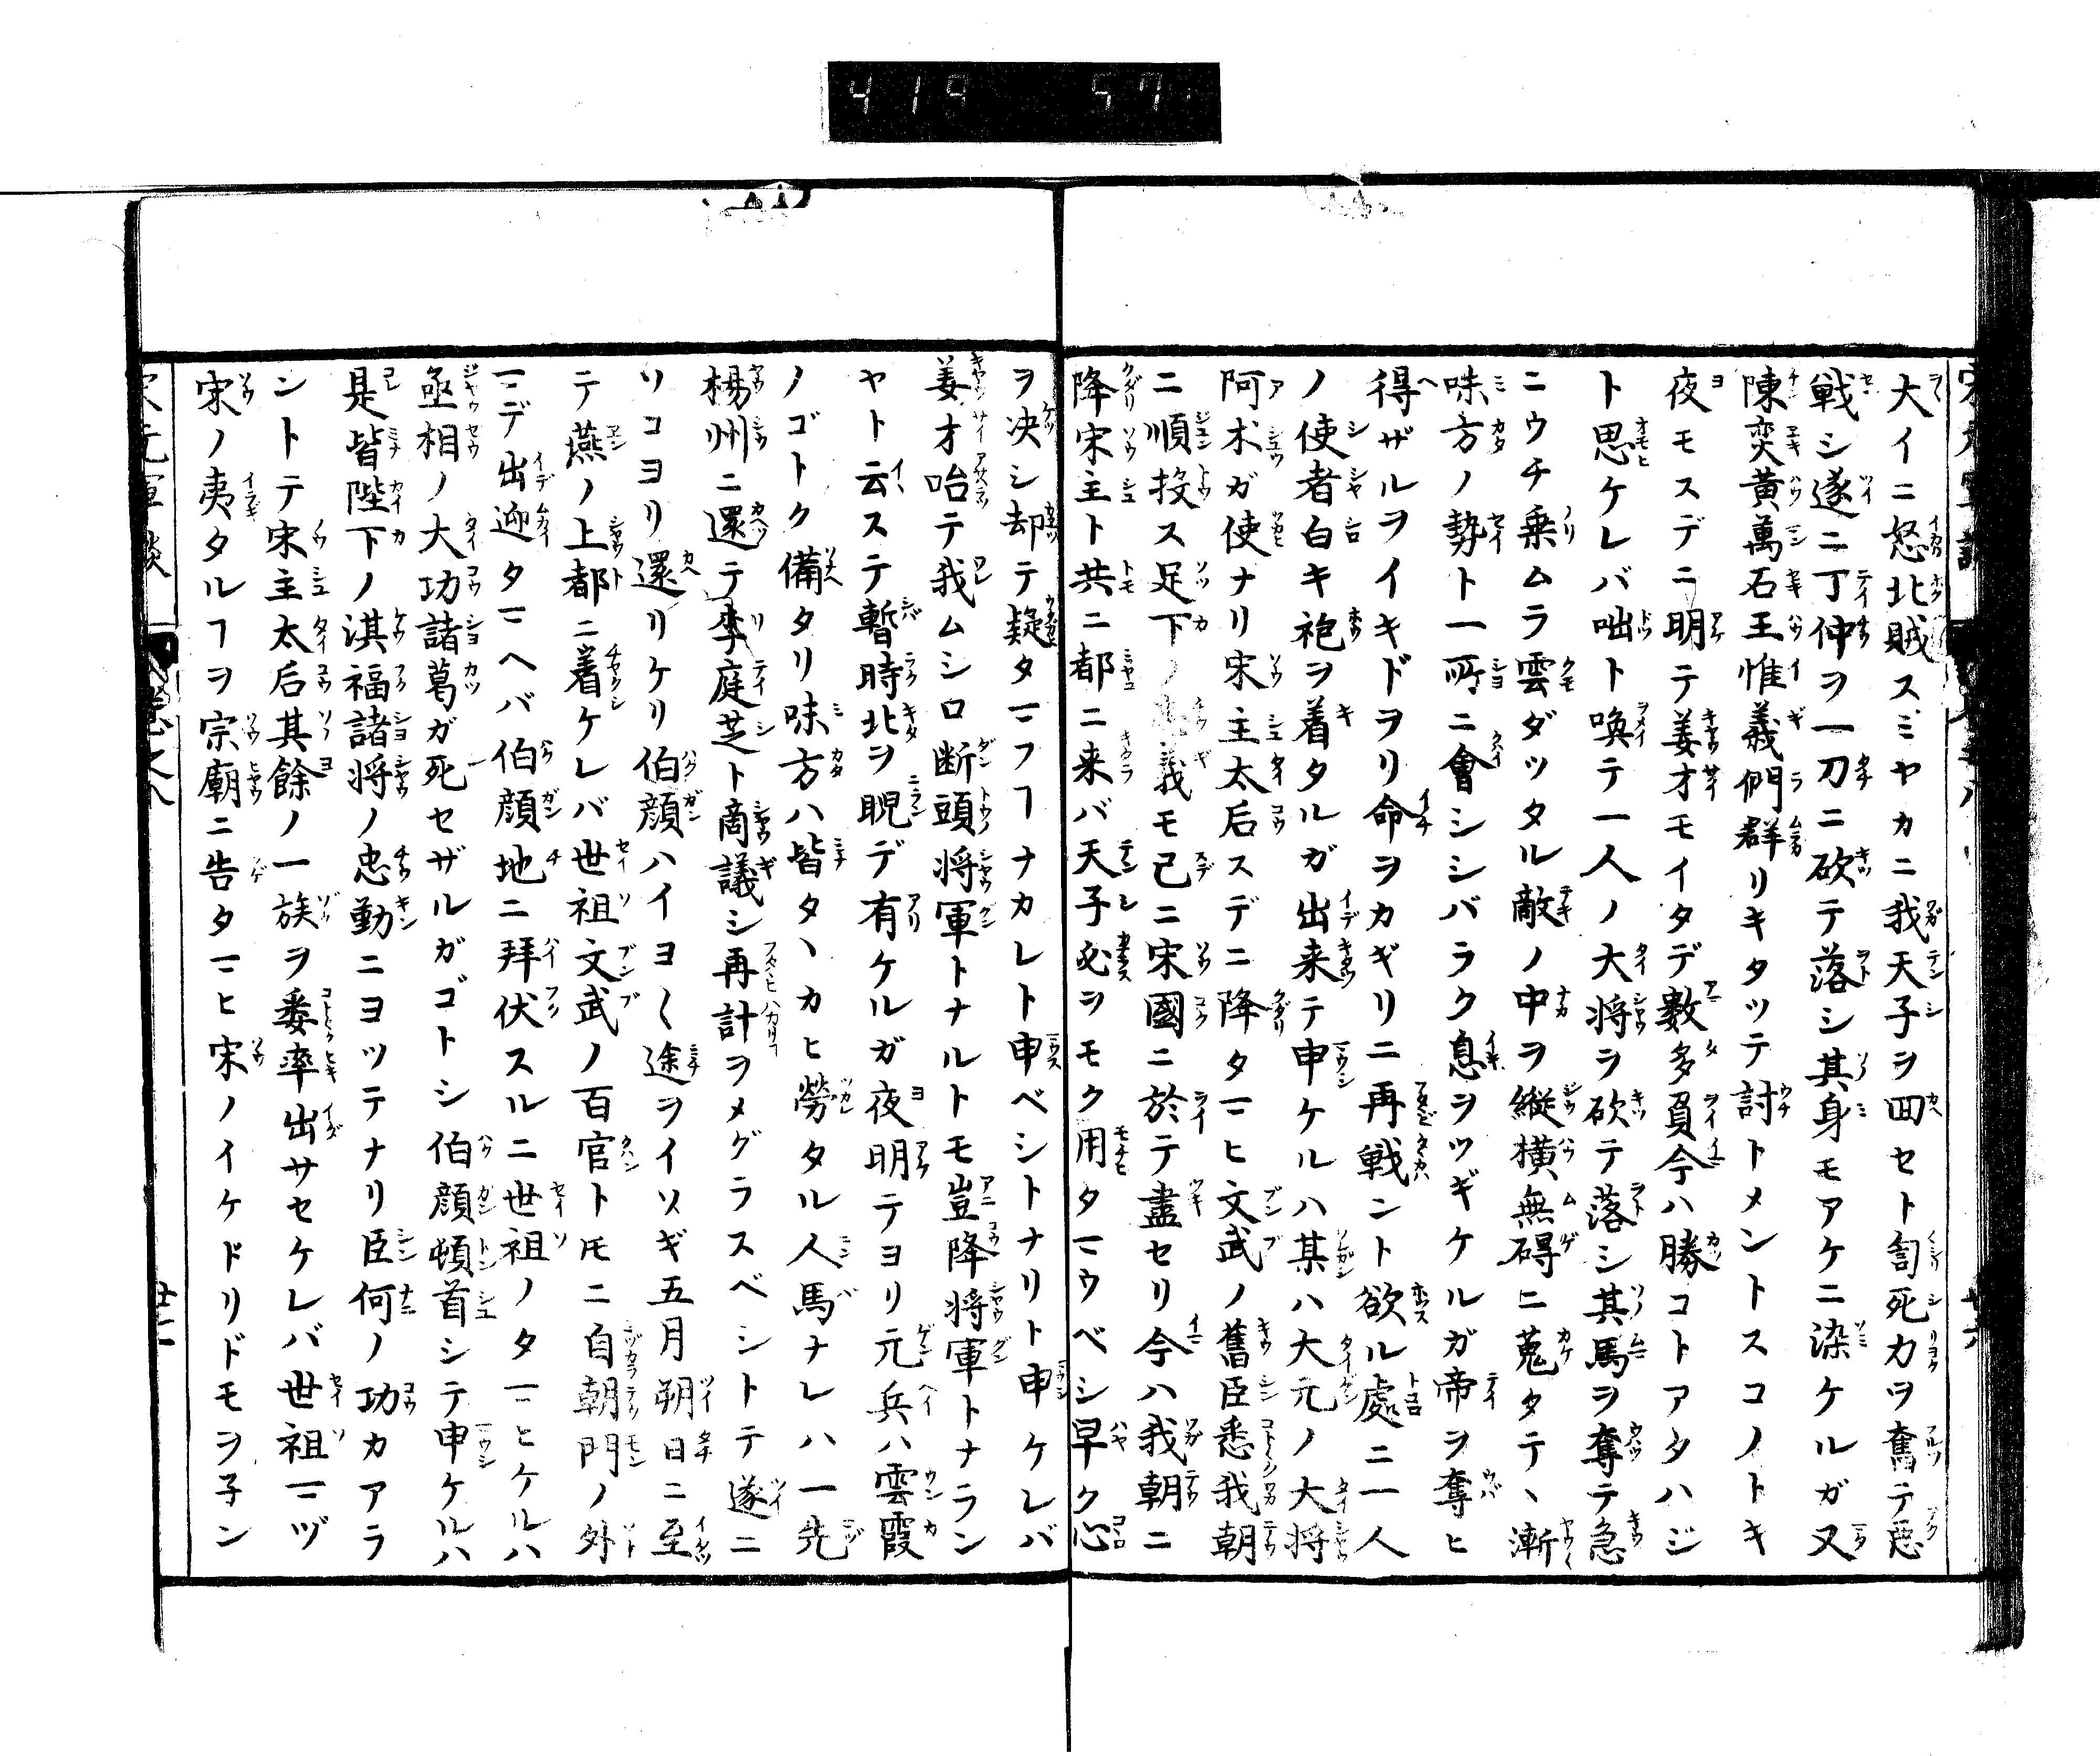 419 57
大イニ怒北賊スミヤカニ我天子ヲ回セト訇死力ヲ奮テ惡
戦シ遂ニ丁仲ヲ一刀ニ砍テ落シ其身モアケニ染ケルガ又
陳奕黄萬石王惟義們群リキタツテ討トメントスコノトキ
夜モスデニ明テ姜才モイタデ數多負今ハ勝コトアタハジ
ト思ケレバ咄ト喚テ一人ノ大将ヲ砍テ落シ其馬ヲ奪テ急
ニウチ乗ムラ雲ダツタル敵ノ中ヲ縦横無碍ニ蒐タテヽ漸
味方ノ勢ト一所ニ會シシバラク息ヲツギケルガ帝ヲ奪ヒ
得ザルヲイキドヲリ命ヲカギリニ再戦ント欲ル處ニ一人
ノ使者白キ袍ヲ着タルガ出来テ申ケルハ某ハ大元ノ大将
阿术ガ使ナリ宋主太后スデニ降タマヒ文武ノ舊臣悉我朝
ニ順投ス足下ノ義モ已ニ宋國ニ於テ盡セリ今ハ我朝ニ
降宋主ト共ニ都ニ来バ天子必ヲモク用タマウベシ早ク心
ヲ决シ却テ疑タマフヿナカレト申ベシトナリト申ケレバ
姜才咍テ我ムシロ断頭将軍トナルトモ豈降将軍トナラン
ヤト云ステ暫時北ヲ睨デ有ケルガ夜明テヨリ元兵ハ雲霞
ノゴトク備タリ味方ハ皆タヽカヒ勞タル人馬ナレハ一先
楊州ニ還テ李庭芝ト商議シ再計ヲメグラスベシトテ遂ニ
ソコヨリ還リケリ伯顔ハイヨ〱途ヲイソギ五月朔日ニ至
テ燕ノ上都ニ着ケレバ世祖文武ノ百官トモニ自朝門ノ外
マデ出迎タマヘバ伯顔地ニ拜伏スルニ世祖ノタマヒケルハ
丞相ノ大功諸葛ガ死セザルガゴトシ伯顔頓首シテ申ケルハ
是皆陛下ノ淇福諸将ノ忠勤ニヨツテナリ臣何ノ功カアラ
ントテ宋主太后其餘ノ一族ヲ悉率出サセケレバ世祖マヅ
宋ノ夷タルヿヲ宗廟ニ告タマヒ宋ノイケドリドモヲ子ン